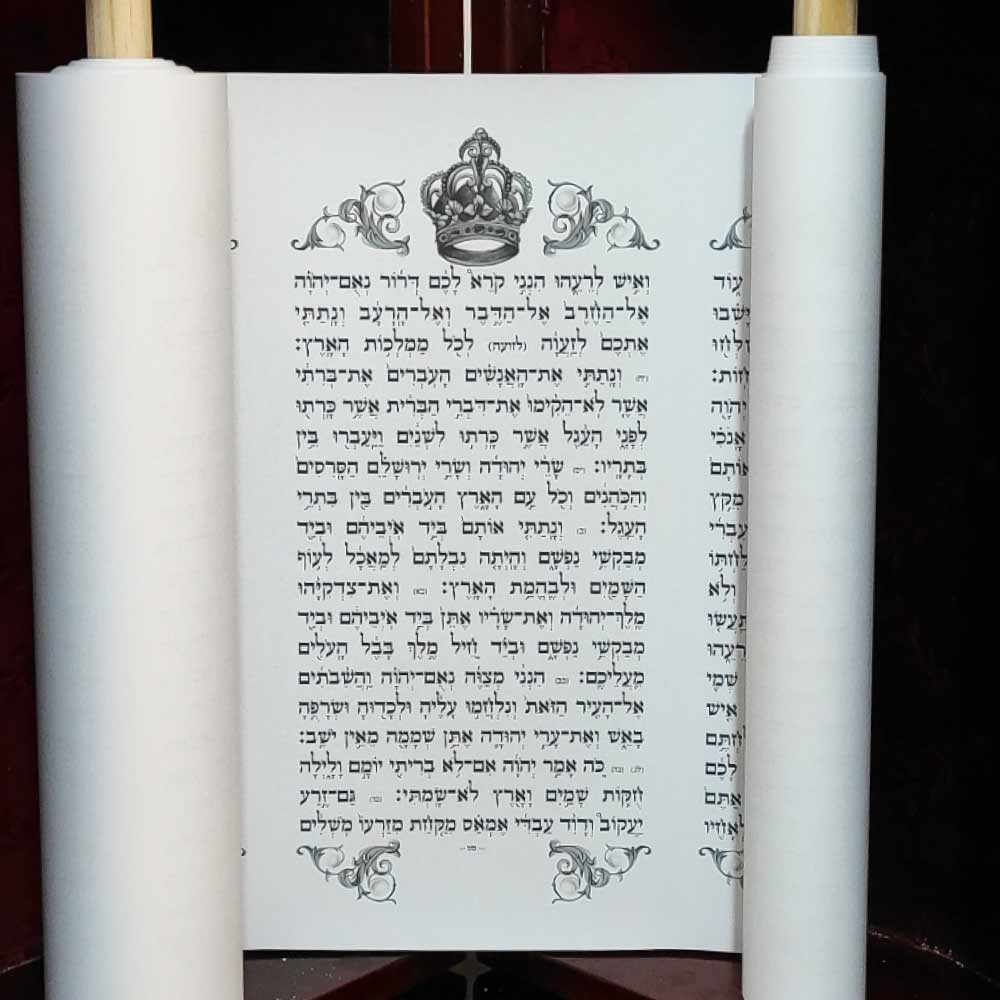 ע֑וֹד
יְהֹוָ֖ה
אָנֹכִ֗י
אוֹתָם֙
מִקֵּ֣ץ
וְלֹֽא
שְׁמִ֑י
אִ֣ישׁ
לָכֶ֔ם
אַתֶּ֖ם
וְאִ֣ישׁ לְרֵעֵ֑הוּ הִנְנִ֣י קֹרֵא֩ לָכֶ֨ם דְּר֜וֹר נְאֻם־יְהֹוָ֗ה
אֶל־הַחֶ֙רֶב֙ אֶל־הַדֶּ֣בֶר וְאֶל־הָרָעָ֔ב וְנָתַתִּ֤י
אֶתְכֶם֙ לְזַעֲוָ֔ה (לזועה) לְכֹ֖ל מַמְלְכ֥וֹת הָאָֽרֶץ׃
(יח) וְנָתַתִּ֣י אֶת־הָאֲנָשִׁ֗ים הָעֹֽבְרִים֙ אֶת־בְּרִתִ֔י
אֲשֶׁ֤ר לֹֽא־הֵקִ֙ימוּ֙ אֶת־דִּבְרֵ֣י הַבְּרִ֔ית אֲשֶׁ֥ר כָּרְת֖וּ
לְפָנָ֑י הָעֵ֙גֶל֙ אֲשֶׁ֣ר כָּרְת֣וּ לִשְׁנַ֔יִם וַיַּעַבְר֖וּ בֵּ֥ין
בְּתָרָֽיו׃ (יט) שָׂרֵ֨י יְהוּדָ֜ה וְשָׂרֵ֣י יְרוּשָׁלִַ֗ם הַסָּֽרִסִים֙
וְהַכֹּ֣הֲנִ֔ים וְכֹ֖ל עַ֣ם הָאָ֑רֶץ הָעֹ֣בְרִ֔ים בֵּ֖ין בִּתְרֵ֥י
הָעֵֽגֶל׃ (כ) וְנָתַתִּ֤י אוֹתָם֙ בְּיַ֣ד אֹֽיְבֵיהֶ֔ם וּבְיַ֖ד
מְבַקְשֵׁ֣י נַפְשָׁ֑ם וְהָיְתָ֤ה נִבְלָתָם֙ לְמַֽאֲכָ֔ל לְע֥וֹף
הַשָּׁמַ֖יִם וּלְבֶהֱמַ֥ת הָאָֽרֶץ׃ (כא) וְאֶת־צִדְקִיָּ֨הוּ
מֶֽלֶךְ־יְהוּדָ֜ה וְאֶת־שָׂרָ֗יו אֶתֵּן֙ בְּיַ֣ד אֹֽיְבֵיהֶ֔ם וּבְיַ֖ד
מְבַקְשֵׁ֣י נַפְשָׁ֑ם וּבְיַ֗ד חֵ֚יל מֶ֣לֶךְ בָּבֶ֔ל הָעֹלִ֖ים
מֵעֲלֵיכֶֽם׃ (כב) הִנְנִ֨י מְצַוֶּ֜ה נְאֻם־יְהֹוָ֗ה וַהֲשִׁ֨בֹתִ֜ים
אֶל־הָעִ֤יר הַזֹּאת֙ וְנִלְחֲמ֣וּ עָלֶ֔יהָ וּלְכָד֖וּהָ וּשְׂרָפֻ֣הָ
בָאֵ֑שׁ וְאֶת־עָרֵ֧י יְהוּדָ֛ה אֶתֵּ֥ן שְׁמָמָ֖ה מֵאֵ֥ין יֹשֵֽׁב׃
(לג) (כה) כֹּ֚ה אָמַ֣ר יְהֹוָ֔ה אִם־לֹ֥א בְרִיתִ֖י יוֹמָ֣ם וָלָ֑יְלָה
חֻקּ֛וֹת שָׁמַ֥יִם וָאָ֖רֶץ לֹא־שָֽׂמְתִּי׃ (כו) גַּם־זֶ֣רַע
יַעֲקוֹב֩ וְדָוִ֨ד עַבְדִּ֜י אֶמְאַ֗ס מִקַּ֤חַת מִזַּרְעוֹ֙ מֹֽשְׁלִ֔ים